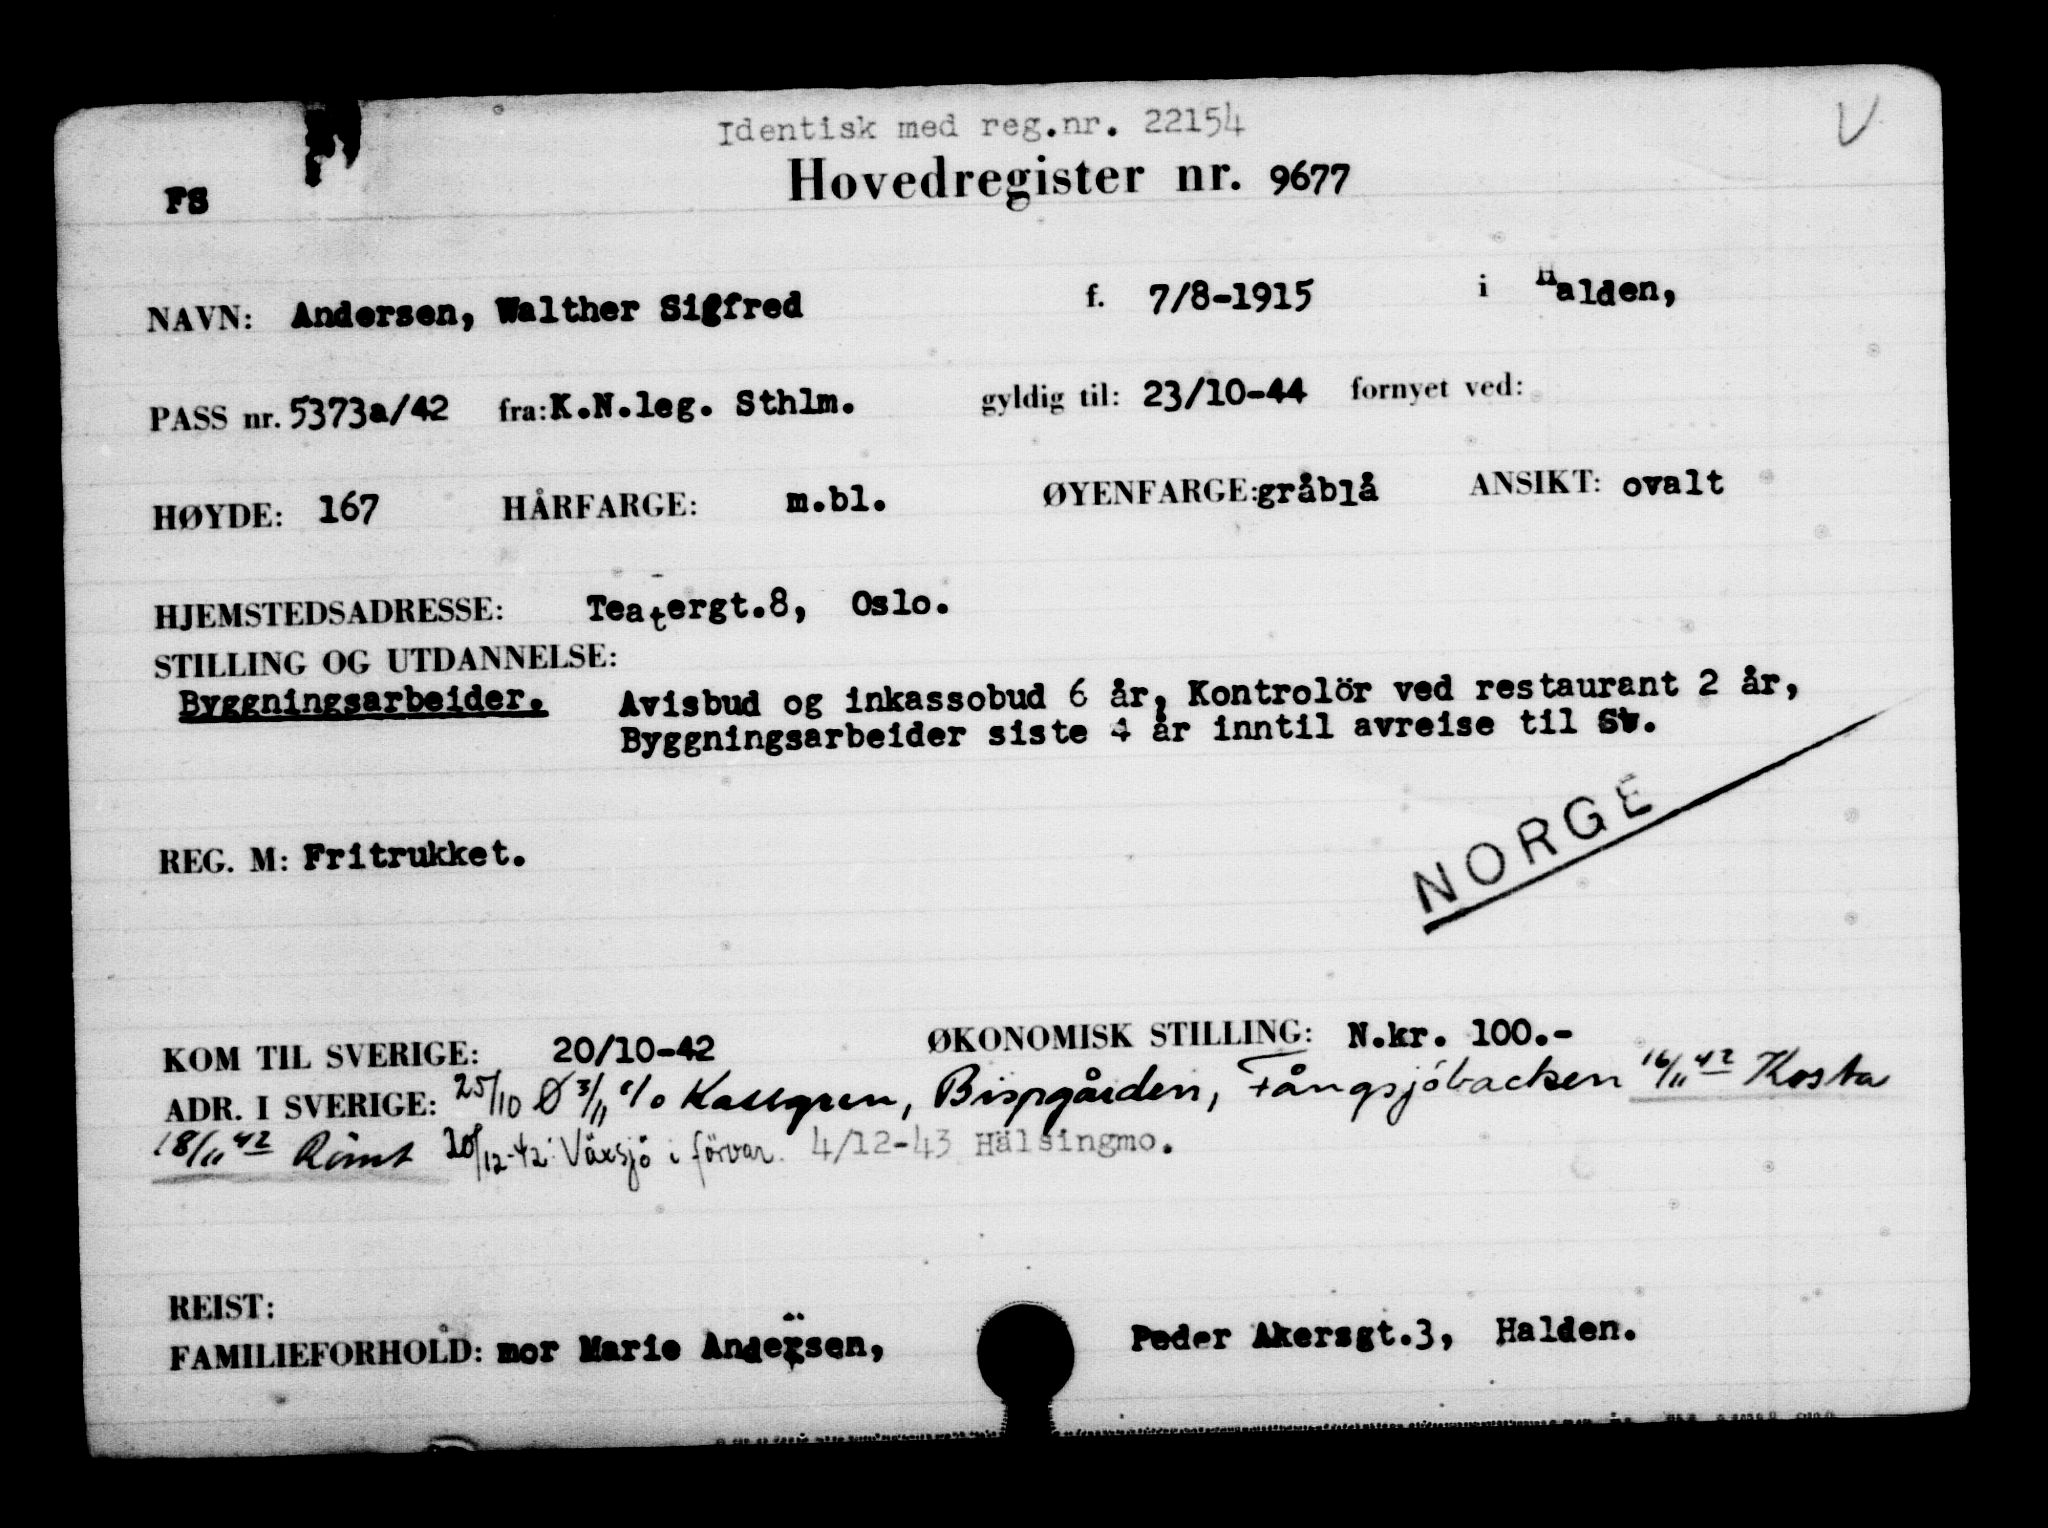 Identisk med reg.nr. 22154
V
FS
Hovedregister nr. 9677
NAVN: Andersen, Walther Sigfred f. 7/8-1915 i Halden,
PASS nr. 5373a/42 fra: K.N.leg. Sthlm. gyldig til: 23/10-44 fornyet ved:
HØYDE: 167 HÅRFARGE: m.bl. ØYENFARGE: gråblå ANSIKT: ovalt
HJEMSTEDSADRESSE: Teatergt.8, Oslo.
STILLING OG UTDANNELSE:
Byggningsarbeider. Avisbud og inkassobud 6 år, Kontrolör ved restaurant 2 år,
Byggningsarbeider siste 4 år inntil avreise til Sv.
NORGE
REG. M: Fritrukket.
KOM TIL SVERIGE: 20/10-42 ØKONOMISK STILLING: N.kr. 100.-
ADR. I SVERIGE: 25/10 Ø 3/11 c/o Kallgren, Bispgården, Fångsjöbacken 16/11 42 Kosta
18/11 42 Rømt 20/12-42: Växsjö i förvar. 4/12-43 Hälsingmo.
REIST:
FAMILIEFORHOLD: mor Marie Andersen, Peder Akersgt.3, Halden.